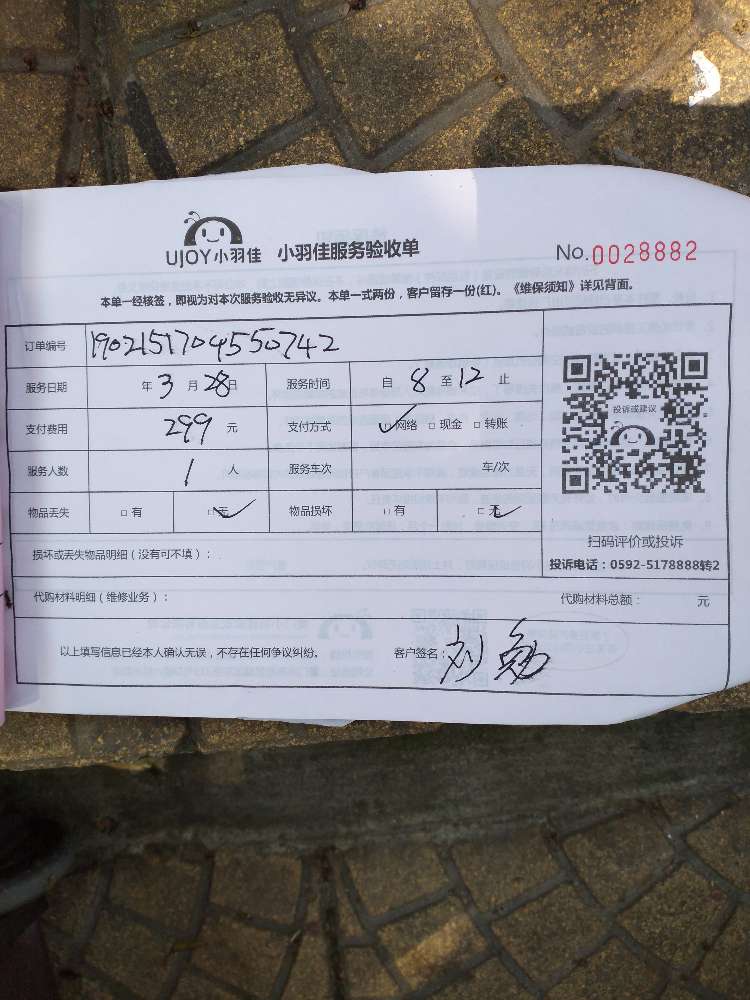 UJOY小羽佳 小羽佳服务验收单 No.0028882
本单一经核签，即视为对本次服务验收无异议。本单一式两份，客户留存一份(红)。《维保须知》详见背面。
订单编号 1902151704550742
服务日期 年 3 月 28 日 服务时间 自 8 至 12 止
支付费用 299 元 支付方式 □网络 □现金 □转账
服务人数 1 人 服务车次 车/次
物品丢失 □有 □无 物品损坏 □有 □无
投诉或建议
扫码评价或投诉
投诉电话：0592-5178888转2
损坏或丢失物品明细（没有可不填）：
代购材料明细（维修业务）： 代购材料总额： 元
以上填写信息已经本人确认无误，不存在任何争议纠纷。 客户签名：刘勇